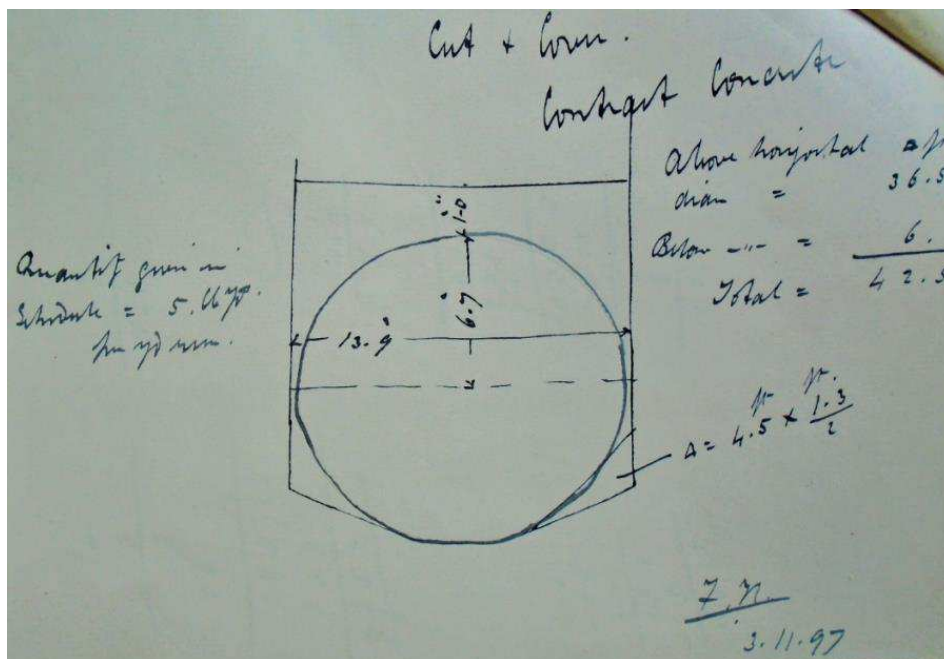 Cut + Cover.
Contract Concrete
Above horizontal
diam = 36.5
Below -"- = 6.
Total = 42.5
Quantity given in
Schedule = 5.
per yd run.
1-0"
6.9"
13.9"
A = 4.5 ft × 1.3 ft / 2
3.11.97